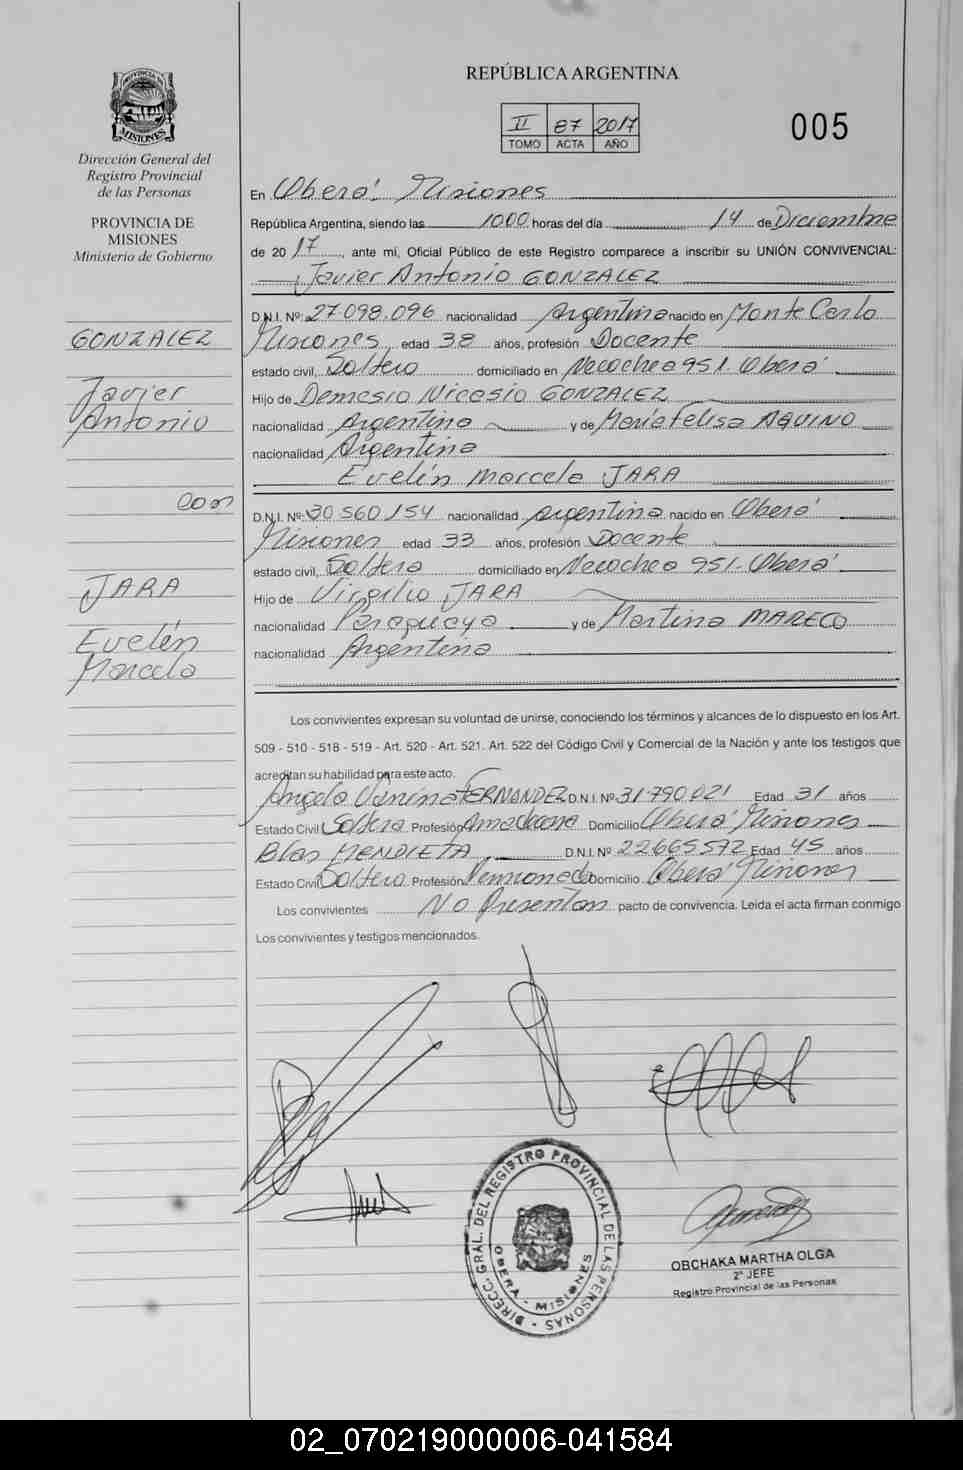 PROVINCIA DE
MISIONES
Dirección General del
Registro Provincial
de las Personas
PROVINCIA DE
MISIONES
Ministerio de Gobierno
GONZALEZ
Javier
Antonio
con
JARA
Evelén
Marcela
REPÚBLICA ARGENTINA
II 87 2017
TOMO ACTA AÑO
005
En Oberá, Misiones
República Argentina, siendo las 1000 horas del día 14 de Diciembre
de 2017, ante mi, Oficial Público de este Registro comparece a inscribir su UNIÓN CONVIVENCIAL:
Javier Antonio GONZALEZ
D.N.I. Nº: 27.098.096 nacionalidad Argentina nacido en Monte Carlo
Misiones, edad 38 años, profesión Docente
estado civil, Soltero domiciliado en Necochea 951. Oberá
Hijo de Demesio Nicasio GONZALEZ
nacionalidad Argentina y de María Felisa AQUINO
nacionalidad Argentina
Evelén Marcela JARA
D.N.I. Nº: 30560154 nacionalidad Argentina nacido en Oberá
Misiones edad 33 años, profesión Docente
estado civil, Soltera domiciliado en Necochea 951- Oberá
Hijo de Virgilio JARA
nacionalidad Paraguaya y de Martina MARECO
nacionalidad Argentina
Los convivientes expresan su voluntad de unirse, conociendo los términos y alcances de lo dispuesto en los Art.
509 - 510 - 518 - 519 - Art. 520 - Art. 521. Art. 522 del Código Civil y Comercial de la Nación y ante los testigos que
acreditan su habilidad para este acto.
Angela Vanina FERNANDEZ D.N.I. Nº 31790021 Edad 31 años
Estado Civil Soltera Profesión Ama de casa Domicilio Oberá Misiones
Blas MENDIETA D.N.I. Nº 22665572 Edad 45 años
Estado Civil Soltero Profesión Pensionado Domicilio Oberá Misiones
Los convivientes No Presentan pacto de convivencia. Leida el acta firman conmigo
Los convivientes y testigos mencionados.
DIRECC. GRAL. DEL REGISTRO PROVINCIAL DE LAS PERSONAS
OBERA - MISIONES
OBCHAKA MARTHA OLGA
2º JEFE
Registro Provincial de las Personas
02_070219000006-041584